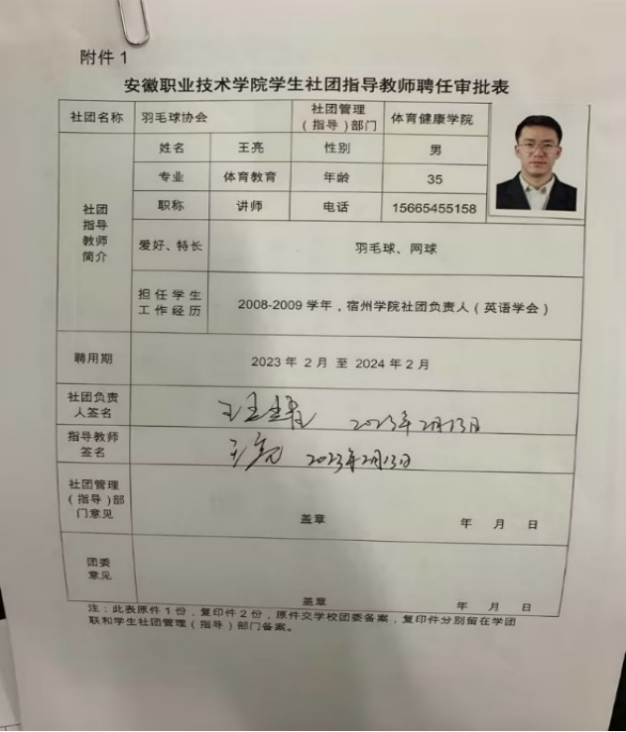 附件1
安徽职业技术学院学生社团指导教师聘任审批表
社团名称 羽毛球协会 社团管理（指导）部门 体育健康学院
社团指导教师简介
姓名 王亮 性别 男
专业 体育教育 年龄 35
职称 讲师 电话 15665455158
爱好、特长 羽毛球、网球
担任学生工作经历 2008-2009 学年，宿州学院社团负责人（英语学会）
聘用期 2023 年 2 月 至 2024 年 2 月
社团负责人签名 2023年2月13日
指导教师签名 王亮 2023年2月13日
社团管理（指导）部门意见 盖章 年 月 日
团委意见 盖章 年 月 日
注：此表原件 1 份，复印件 2 份，原件交学校团委备案，复印件分别留在学团
联和学生社团管理（指导）部门备案。